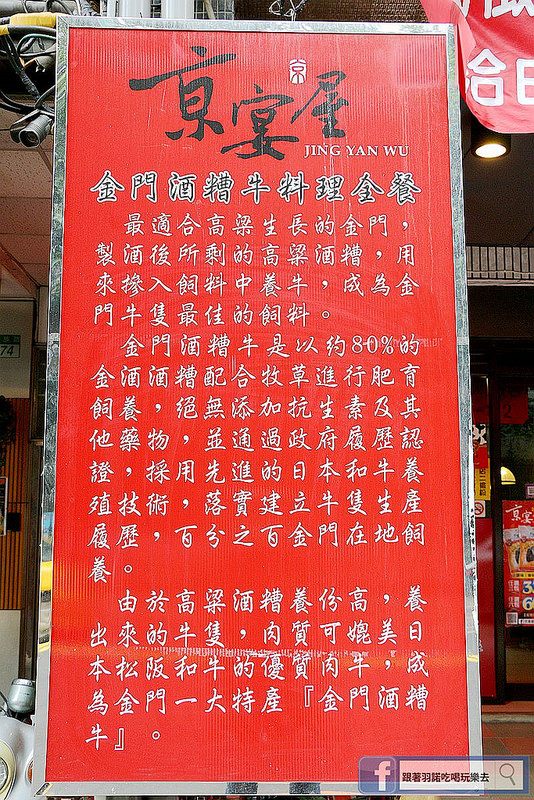 京
京宴屋
JING YAN WU
金門酒糟牛料理全餐
最適合高粱生長的金門，
製酒後所剩的高粱酒糟，用
來摻入飼料中養牛，成為金
門牛隻最佳的飼料。
金門酒糟牛是以約80%的
金酒酒糟配合牧草進行肥育
飼養，絕無添加抗生素及其
他藥物，並通過政府履歷認
證，採用先進的日本和牛養
殖技術，落實建立牛隻生產
履歷，百分之百金門在地飼
養。
由於高粱酒糟養份高，養
出來的牛隻，肉質可媲美日
本松阪和牛的優質肉牛，成
為金門一大特產『金門酒糟
牛』。
74
京宴
f 跟著羽諾吃喝玩樂去